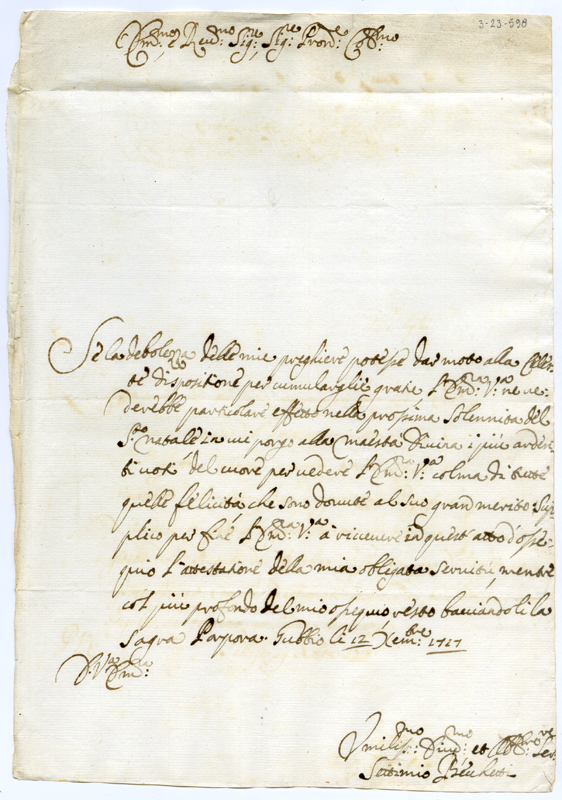 3-23-598
Em:mo e Reud:mo Sig:re, Sig:re Pron:e Coll:mo
Se la debolezza delle mie preghiere potesse dar moto alla Celes-
te dispositione per cumulargli gratie l'Em:za V:a ne ve-
derebbe particolare effetto nella prossima Solennità del
S:to natale in cui porgo alla maestà Divina i più arden-
ti voti del cuore per vedere l'Em:za V:a colma di tutte
quelle felicità che sono dovute al suo gran merito: Sup-
plico per fine l'Em:za V:a à ricevere in quest'atto d'osse-
quio l'attestatione della mia obligata servitù, mentre
col più profondo del mio ossequio resto bacciandoli la
Sagra Porpora. Gubbio li 12 Xem:bre 1727
D. V:ra Em:za
Umiliss:mo Diuo:mo et Ser:re
Settimio